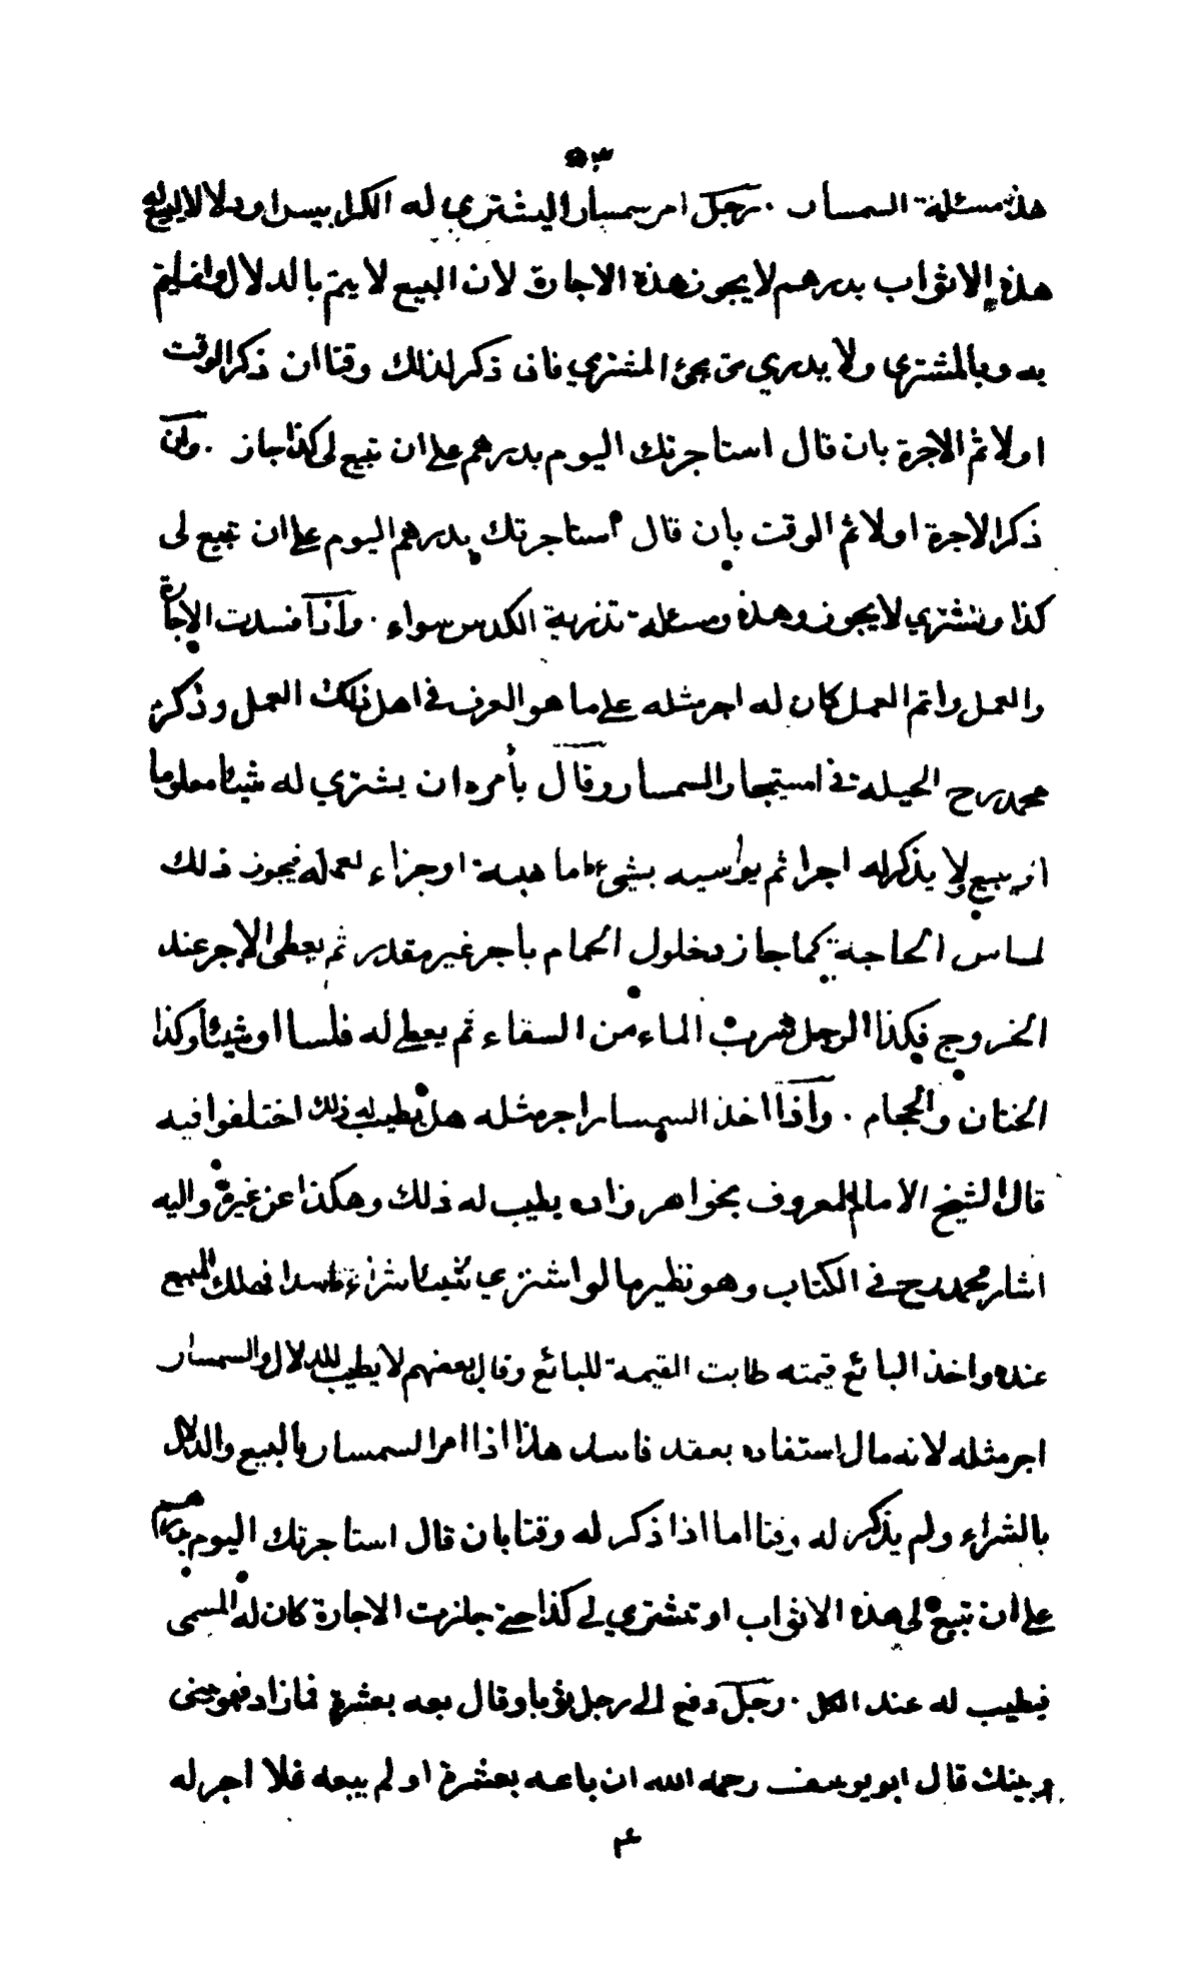 ٥٣
هذه مسئلة السمسار . رجل امر سمسارا ليشتري له الكرابيس او دلالا ليبيع له
هذه الاثواب بدرهم لا يجوز هذه الاجارة لان البيع لا يتم بالدلال وانما يتم
به وبالمشتري ولا يدري متى يجئ المشتري فان ذكر لذلك وقتا ان ذكر الوقت
اولا ثم الاجرة بان قال استاجرتك اليوم بدرهم على ان تبيع لى كذا جاز . وان
ذكر الاجرة اولا ثم الوقت بان قال استاجرتك بدرهم اليوم على ان تبيع لى
كذا وتشتري لا يجوز وهذه ومسئلة تذرية الكدس سواء . واذا فسدت الاجارة
والعمل واتم العمل كان له اجر مثله على ما هو العرف فى اهل ذلك العمل وذكر
محمد رح الحيلة فى استيجار السمسار وقال يأمره ان يشتري له شيئا معلوما
او يبيع ولا يذكر له اجرا ثم يواسيه بشئ اما هبة او جزاء لعمله فيجوز ذلك
لمساس الحاجة كما جاز دخلول الحمام بأجر غير مقدر ثم يعطى الاجر عند
الخروج فكذا الرجل شرب الماء من السقاء ثم يعطى له فلسا او شيئا وكذا
الختان والحجام . واذا اخذ السمسار اجر مثله هل يطيب له ذلك اختلفوا فيه
قال الشيخ الامام المعروف بخواهر زاده يطيب له ذلك وهكذا عن غيره واليه
اشار محمد رح فى الكتاب وهو نظير ما لو اشترى شيئا شراء فاسدا فهلك المبيع
عنده واخذ البائع قيمته طابت القيمة للبائع وقال بعضهم لا يطيب للدلال والسمسار
اجر مثله لانه مال استفاده بعقد فاسد هذا اذا امر السمسار بالبيع والدلال
بالشراء ولم يذكر له وقتا اما اذا ذكر له وقتا بان قال استاجرتك اليوم بدرهم
على ان تبيع لى هذه الاثواب او تشتري لى كذا حتى جازت الاجارة كان له المسمى
فيطيب له عند الكل . رجل دفع الى رجل ثوبا وقال بعه بعشرة فما زاد فهو بينى
وبينك قال ابو يوسف رحمه الله ان باعه بعشرة او لم يبعه فلا اجر له